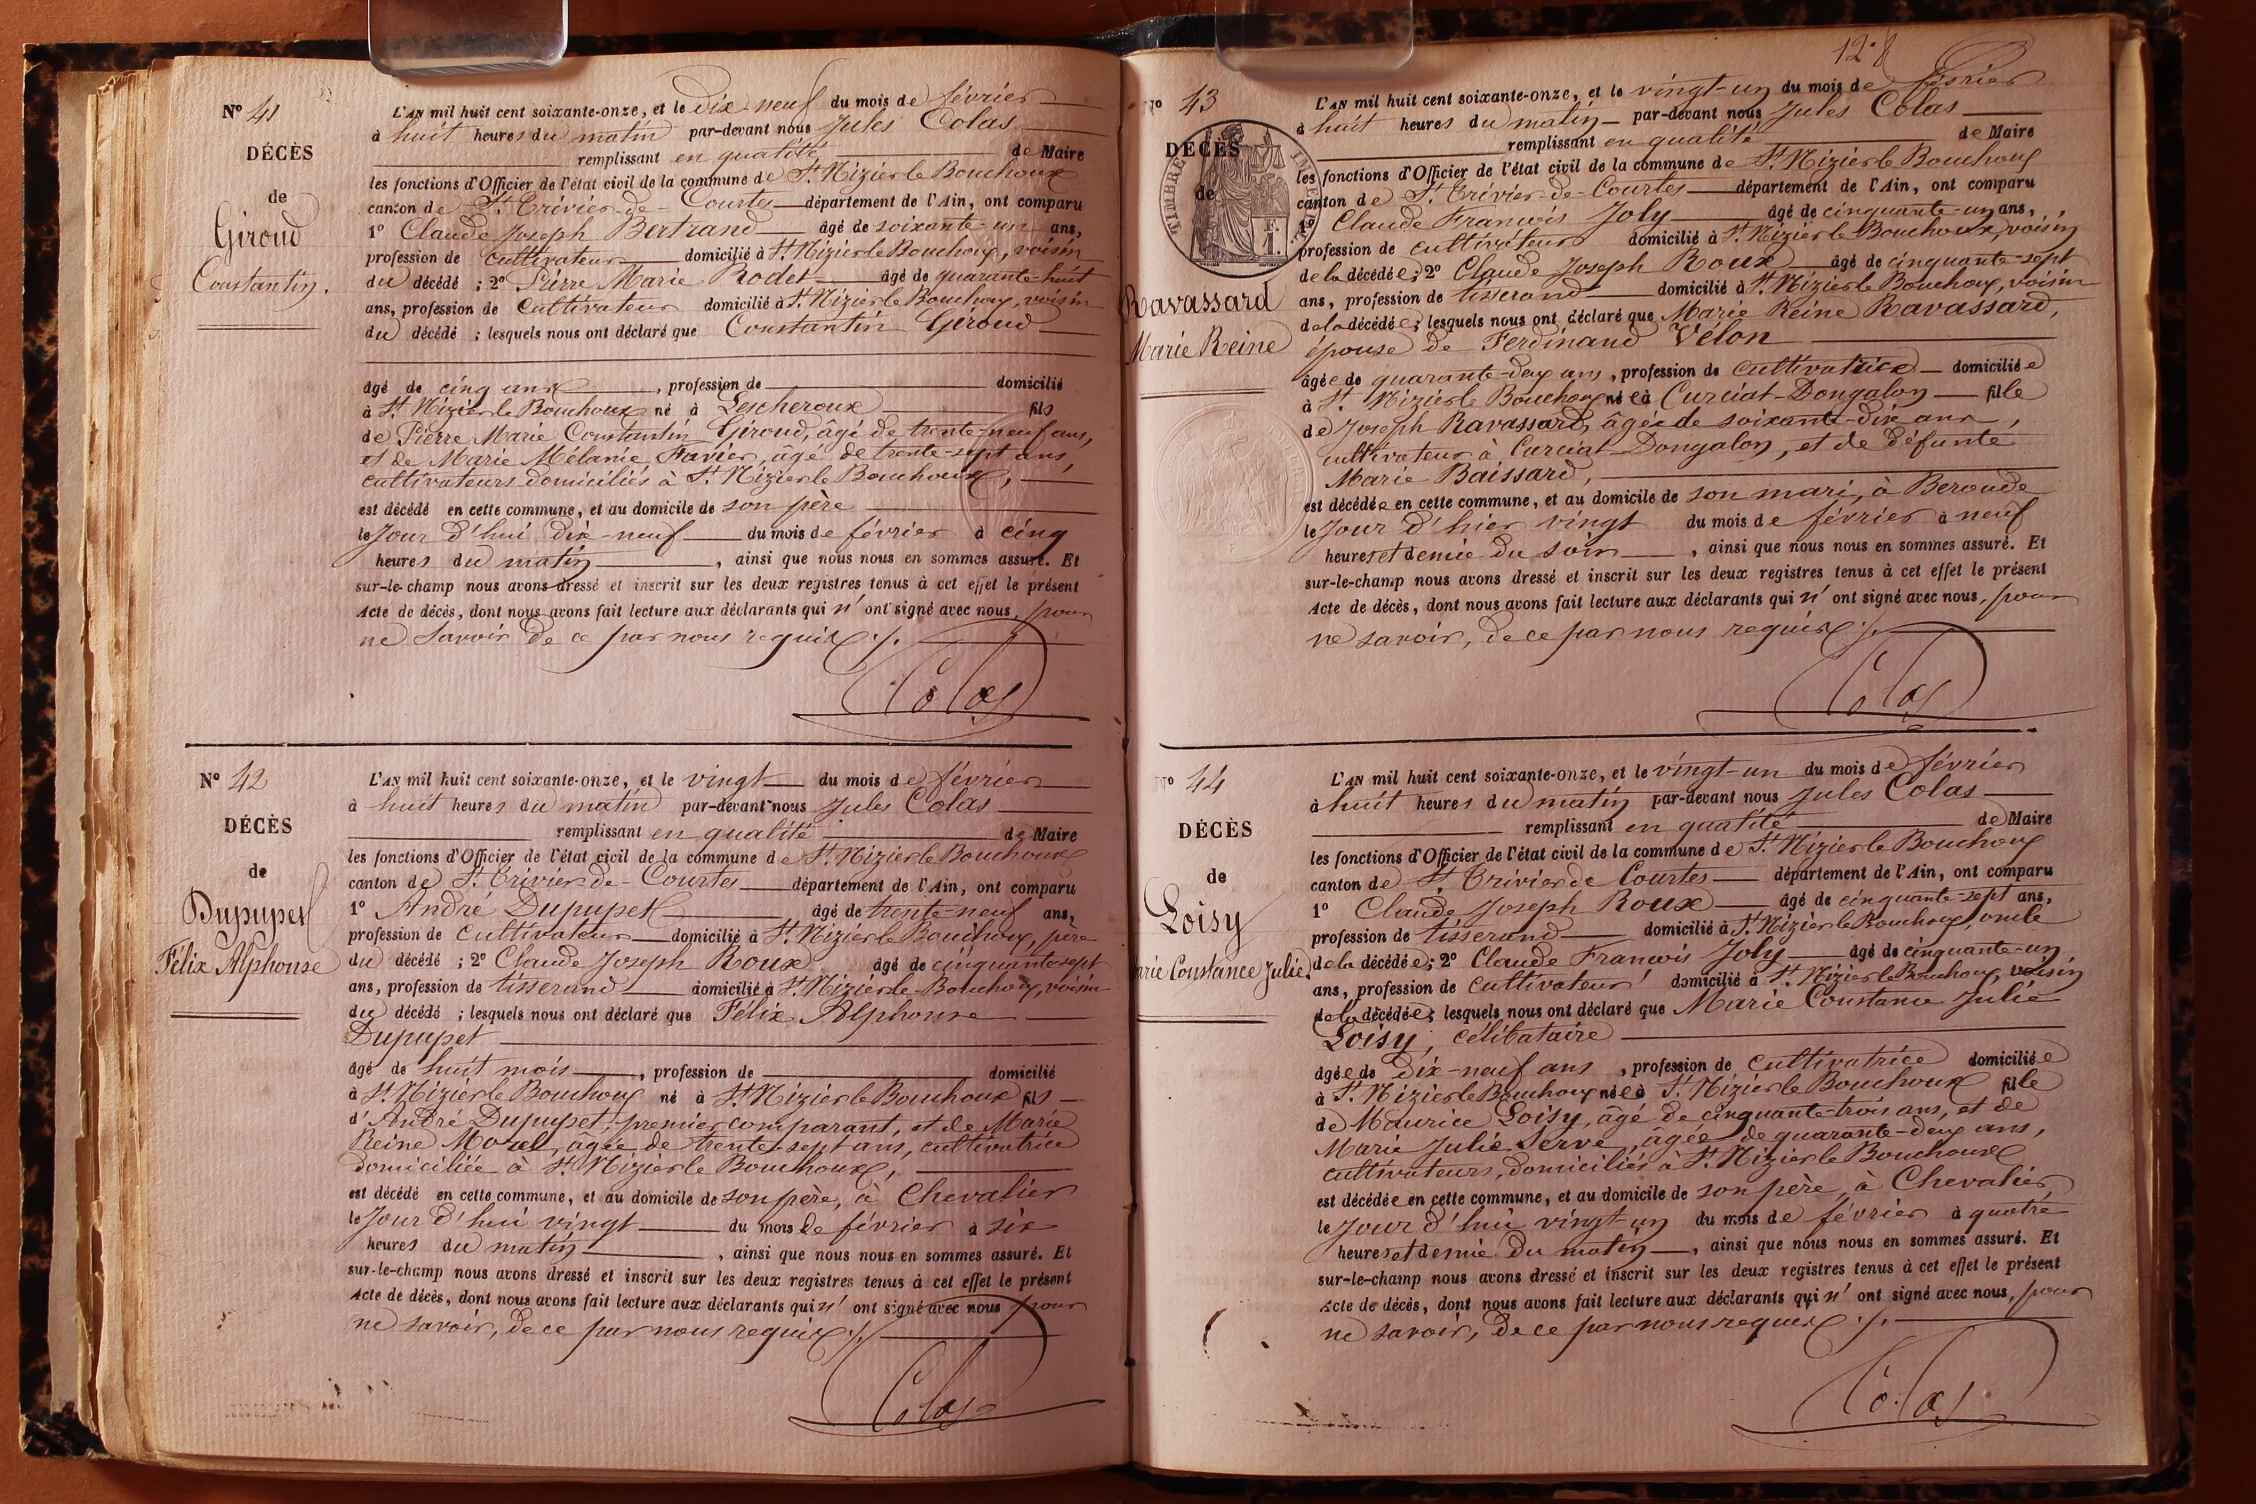 N° 41
DÉCÈS
de
Giroud
Constantin.
L'AN mil huit cent soixante-onze, et le dix neuf du mois de février
à huit heures du matin par-devant nous Jules Colas
remplissant en qualité de Maire
les fonctions d'Officier de l'état civil de la commune de St. Nizier le Bouchoux
canton de St. Trivier-de-Courtes département de l'Ain, ont comparu
1° Claude Joseph Bertrand âgé de soixante-un ans,
profession de cultivateur domicilié à St. Nizier le Bouchoux, voisin
du décédé ; 2° Pierre Marie Rodet âgé de quarante-huit
ans, profession de cultivateur domicilié à St. Nizier le Bouchoux, voisin
du décédé ; lesquels nous ont déclaré que Constantin Giroud
âgé de cinq ans, profession de domicilié
à St. Nizier le Bouchoux né à Lescheroux fils
de Pierre Marie Constantin Giroud, âgé de trente-neuf ans,
et de Marie Mélanie Favier, âgé de trente-sept ans,
cultivateurs domiciliés à St. Nizier le Bouchoux,
est décédé en cette commune, et au domicile de son père
le Jour d'hui dix-neuf du mois de février à cinq
heures du matin, ainsi que nous nous en sommes assuré. Et
sur-le-champ nous avons dressé et inscrit sur les deux registres tenus à cet effet le présent
Acte de décès, dont nous avons fait lecture aux déclarants qui n'ont signé avec nous, pour
ne savoir de ce par nous requis ./.
Colas
N° 42
DÉCÈS
de
Dupupet
Félix Alphonse
L'AN mil huit cent soixante-onze, et le vingt du mois de février
à huit heures du matin par-devant nous Jules Colas
remplissant en qualité de Maire
les fonctions d'Officier de l'état civil de la commune de St. Nizier le Bouchoux
canton de St. Trivier-de-Courtes département de l'Ain, ont comparu
1° André Dupupet âgé de trente-neuf ans,
profession de cultivateur domicilié à St. Nizier le Bouchoux, père
du décédé ; 2° Claude Joseph Roux âgé de cinquante-sept
ans, profession de tisserand domicilié à St. Nizier le Bouchoux, voisin
du décédé ; lesquels nous ont déclaré que Félix Alphonse
Dupupet
âgé de huit mois, profession de domicilié
à St. Nizier le Bouchoux né à St. Nizier le Bouchoux fils
d'André Dupupet, premier comparant, et de Marie
Reine Morel, âgée de trente-sept ans, cultivatrice
domiciliée à St. Nizier le Bouchoux,
est décédé en cette commune, et au domicile de son père, à Chevalier
le Jour d'hui vingt du mois de février à six
heures du matin, ainsi que nous nous en sommes assuré. Et
sur-le-champ nous avons dressé et inscrit sur les deux registres tenus à cet effet le présent
Acte de décès, dont nous avons fait lecture aux déclarants qui n'ont signé avec nous pour
ne savoir, de ce par nous requis ./.
Colas
12.
N° 43
DÉCÈS
de
TIMBRE IMPÉRIAL
Ravassard
Marie Reine
L'AN mil huit cent soixante-onze, et le vingt-un du mois de février
à huit heures du matin par-devant nous Jules Colas
remplissant en qualité de Maire
les fonctions d'Officier de l'état civil de la commune de St. Nizier le Bouchoux
canton de St. Trivier-de-Courtes département de l'Ain, ont comparu
1° Claude François Joly âgé de cinquante-un ans,
profession de cultivateur domicilié à St. Nizier le Bouchoux, voisin
de la décédée ; 2° Claude Joseph Roux âgé de cinquante-sept
ans, profession de tisserand domicilié à St. Nizier le Bouchoux, voisin
de la décédée ; lesquels nous ont déclaré que Marie Reine Ravassard,
épouse de Ferdinand Vélon
âgée de quarante-deux ans, profession de cultivatrice domiciliée
à St. Nizier le Bouchoux née à Curciat-Dongalon fille
de Joseph Ravassard, âgée de soixante-dix ans,
cultivateur à Curciat-Dongalon, et de défunte
Marie Baissard,
est décédée en cette commune, et au domicile de son mari, à Beroude
le Jour d'hier vingt du mois de février à neuf
heures et demie du soir, ainsi que nous nous en sommes assuré. Et
sur-le-champ nous avons dressé et inscrit sur les deux registres tenus à cet effet le présent
Acte de décès, dont nous avons fait lecture aux déclarants qui n'ont signé avec nous, pour
ne savoir, de ce par nous requis ./.
Colas
N° 44
DÉCÈS
de
Loisy
Marie Constance Julie.
L'AN mil huit cent soixante-onze, et le vingt-un du mois de février
à huit heures du matin par-devant nous Jules Colas
remplissant en qualité de Maire
les fonctions d'Officier de l'état civil de la commune de St. Nizier le Bouchoux
canton de St. Trivier de Courtes département de l'Ain, ont comparu
1° Claude Joseph Roux âgé de cinquante-sept ans,
profession de tisserand domicilié à St. Nizier le Bouchoux, oncle
de la décédée ; 2° Claude François Joly âgé de cinquante-un
ans, profession de cultivateur domicilié à St. Nizier le Bouchoux, voisin
de la décédée ; lesquels nous ont déclaré que Marie Constance Julie
Loisy, célibataire
âgée de dix-neuf ans, profession de cultivatrice domiciliée
à St. Nizier le Bouchoux née à St. Nizier le Bouchoux fille
de Maurice Loisy, âgé de cinquante-trois ans, et de
Marie Julie Serve, âgée de quarante-deux ans,
cultivateurs, domiciliés à St. Nizier le Bouchoux
est décédée en cette commune, et au domicile de son père, à Chevalier
le Jour d'hui vingt-un du mois de février à quatre
heures et demie du matin, ainsi que nous nous en sommes assuré. Et
sur-le-champ nous avons dressé et inscrit sur les deux registres tenus à cet effet le présent
Acte de décès, dont nous avons fait lecture aux déclarants qui n'ont signé avec nous, pour
ne savoir, de ce par nous requis ./.
Colas